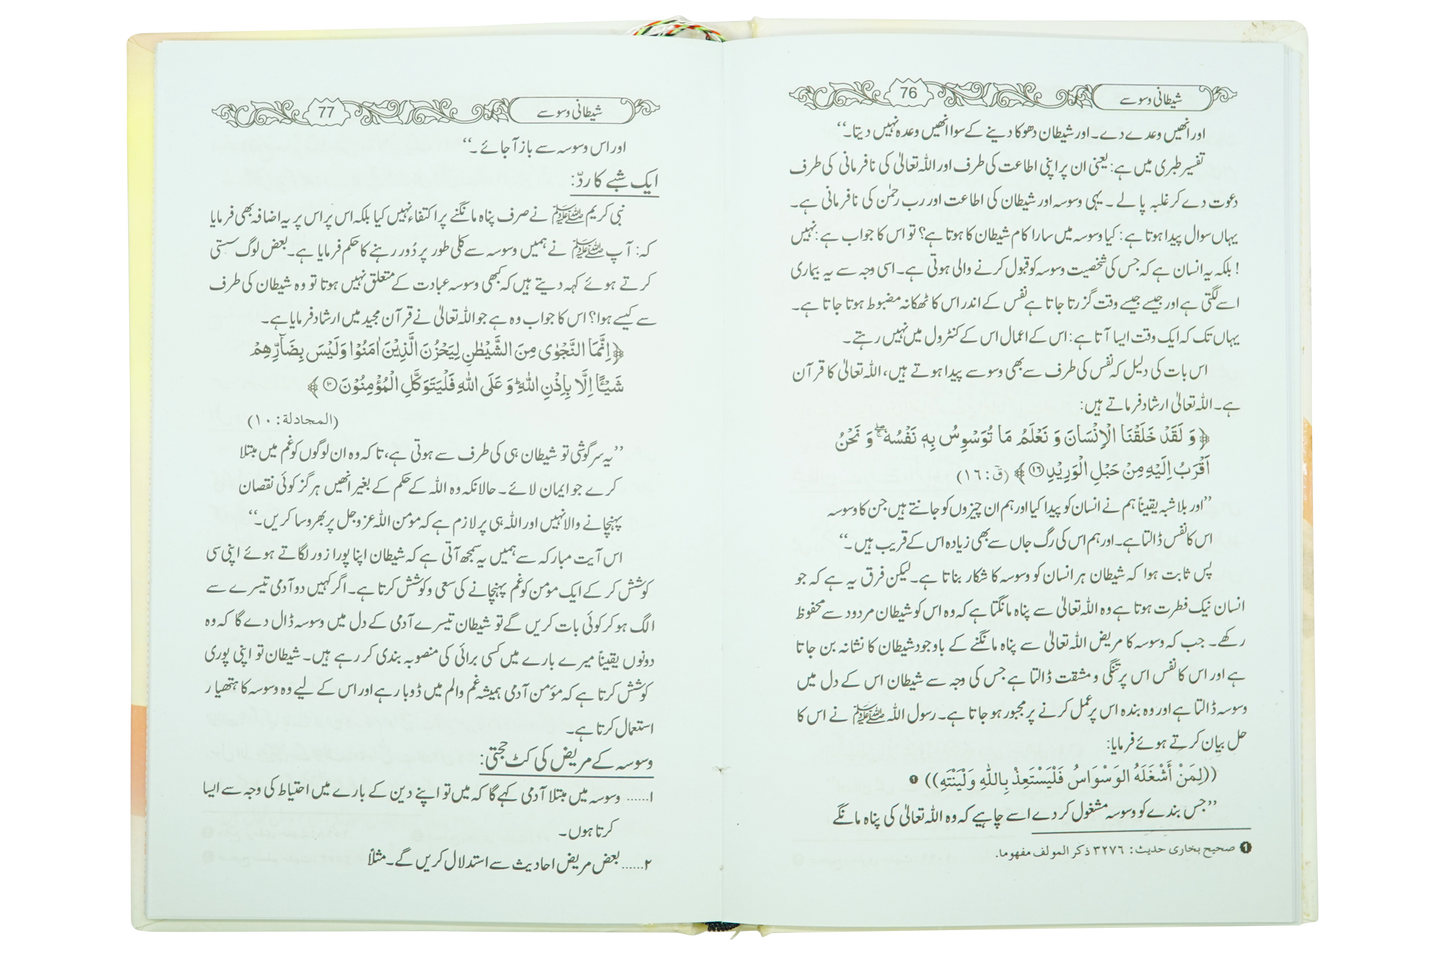 شیطانی وسوسے 76
اور انھیں وعدے دے۔ اور شیطان دھوکا دینے کے سوا انھیں وعدہ نہیں دیتا۔‘‘
تفسیر طبری میں ہے: یعنی ان پر اپنی اطاعت کی طرف اور اللہ تعالیٰ کی نافرمانی کی طرف
دعوت دے کر غلبہ پا لے۔ یہی وسوسہ اور شیطان کی اطاعت اور رب رحمٰن کی نافرمانی ہے۔
یہاں سوال پیدا ہوتا ہے: کیا وسوسہ میں سارا کام شیطان کا ہوتا ہے؟ تو اس کا جواب ہے: نہیں
! بلکہ یہ انسان ہے کہ جس کی شخصیت وسوسہ کو قبول کرنے والی ہوتی ہے۔ اسی وجہ سے یہ بیماری
اسے لگتی ہے اور جیسے جیسے وقت گزرتا جاتا ہے نفس کے اندر اس کا ٹھکانہ مضبوط ہوتا جاتا ہے۔
یہاں تک کہ ایک وقت ایسا آتا ہے: اس کے اعمال اس کے کنٹرول میں نہیں رہتے۔
اس بات کی دلیل کہ نفس کی طرف سے بھی وسوسے پیدا ہوتے ہیں، اللہ تعالیٰ کا قرآن
ہے۔ اللہ تعالیٰ ارشاد فرماتے ہیں:
﴿وَ لَقَدْ خَلَقْنَا الْاِنْسَانَ وَ نَعْلَمُ مَا تُوَسْوِسُ بِهٖ نَفْسُهٗ ۖۚ وَ نَحْنُ
اَقْرَبُ اِلَيْهِ مِنْ حَبْلِ الْوَرِيْدِ ۝۱۶﴾ (قٓ: ۱۶)
’’اور بلا شبہ یقیناً ہم نے انسان کو پیدا کیا اور ہم ان چیزوں کو جانتے ہیں جن کا وسوسہ
اس کا نفس ڈالتا ہے۔ اور ہم اس کی رگ جاں سے بھی زیادہ اس کے قریب ہیں۔‘‘
پس ثابت ہوا کہ شیطان ہر انسان کو وسوسہ کا شکار بناتا ہے۔ لیکن فرق یہ ہے کہ جو
انسان نیک فطرت ہوتا ہے وہ اللہ تعالیٰ سے پناہ مانگتا ہے کہ وہ اس کو شیطان مردود سے محفوظ
رکھے۔ جب کہ وسوسہ کا مریض اللہ تعالیٰ سے پناہ مانگنے کے باوجود شیطان کا نشانہ بن جاتا
ہے اور اس کا نفس اس پر تنگی و مشقت ڈالتا ہے جس کی وجہ سے شیطان اس کے دل میں
وسوسہ ڈالتا ہے اور وہ بندہ اس پر عمل کرنے پر مجبور ہو جاتا ہے۔ رسول اللہ ﷺ نے اس کا
حل بیان کرتے ہوئے فرمایا:
((لِمَنْ أَشْغَلَهُ الْوَسْوَاسُ فَلْيَسْتَعِذْ بِاللّٰهِ وَلْيَنْتَهِ)) ❶
’’جس بندے کو وسوسہ مشغول کر دے اسے چاہیے کہ وہ اللہ تعالیٰ کی پناہ مانگے
❶ صحیح بخاری حدیث: ۳۲۷۶ ذکر المولف مفهوما.
شیطانی وسوسے 77
اور اس وسوسہ سے باز آ جائے۔‘‘
ایک شبے کا ردّ:
نبی کریم ﷺ نے صرف پناہ مانگنے پر اکتفاء نہیں کیا بلکہ اس پر اس پر یہ اضافہ بھی فرمایا
کہ: آپ ﷺ نے ہمیں وسوسہ سے کلی طور پر دُور رہنے کا حکم فرمایا ہے۔ بعض لوگ سستی
کرتے ہوئے کہہ دیتے ہیں کہ کبھی وسوسہ عبادت کے متعلق نہیں ہوتا تو وہ شیطان کی طرف
سے کیسے ہوا؟ اس کا جواب وہ ہے جو اللہ تعالیٰ نے قرآن مجید میں ارشاد فرمایا ہے۔
﴿اِنَّمَا النَّجْوٰى مِنَ الشَّيْطٰنِ لِيَحْزُنَ الَّذِيْنَ اٰمَنُوْا وَلَيْسَ بِضَآرِّهِمْ
شَيْـًٔا اِلَّا بِاِذْنِ اللّٰهِ ؕ وَ عَلَى اللّٰهِ فَلْيَتَوَكَّلِ الْمُؤْمِنُوْنَ ۝۱۰﴾
(المجادلة: ۱۰)
’’یہ سرگوشی تو شیطان ہی کی طرف سے ہوتی ہے، تاکہ وہ ان لوگوں کو غم میں مبتلا
کرے جو ایمان لائے۔ حالانکہ وہ اللہ کے حکم کے بغیر انھیں ہرگز کوئی نقصان
پہنچانے والا نہیں اور اللہ ہی پر لازم ہے کہ مؤمن اللہ عزوجل پر بھروسا کریں۔‘‘
اس آیت مبارکہ سے ہمیں یہ سمجھ آتی ہے کہ شیطان اپنا پورا زور لگاتے ہوئے اپنی سی
کوشش کر کے ایک مؤمن کو غم پہنچانے کی سعی و کوشش کرتا ہے۔ اگر کہیں دو آدمی تیسرے سے
الگ ہو کر کوئی بات کریں گے تو شیطان تیسرے آدمی کے دل میں وسوسہ ڈال دے گا کہ وہ
دونوں یقیناً میرے بارے میں کسی برائی کی منصوبہ بندی کر رہے ہیں۔ شیطان تو اپنی پوری
کوشش کرتا ہے کہ مؤمن آدمی ہمیشہ غم والم میں ڈوبا رہے اور اس کے لیے وہ وسوسہ کا ہتھیار
استعمال کرتا ہے۔
وسوسہ کے مریض کی کٹ حجتی:
۱…… وسوسہ میں مبتلا آدمی کہے گا کہ میں تو اپنے دین کے بارے میں احتیاط کی وجہ سے ایسا
کرتا ہوں۔
۲…… بعض مریض احادیث سے استدلال کریں گے۔ مثلاً